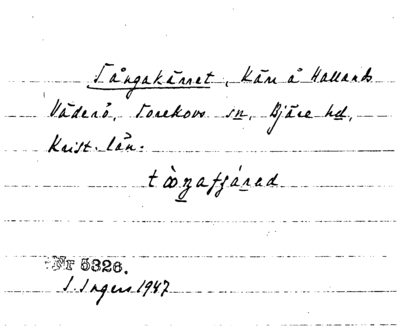 Tångakärret, Kärr å Hallands
Väderö, Torekovs sn, Bjäre hd,
Krist. län.
Nr 5326.
I. Ingers 1947